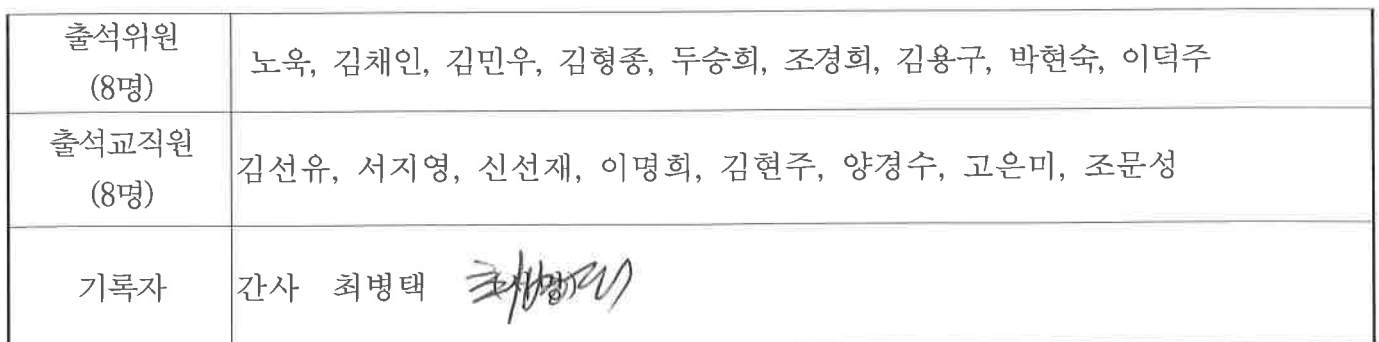 출석위원
(8명)
노욱, 김채인, 김민우, 김형종, 두승희, 조경희, 김용구, 박현숙, 이덕주
출석교직원
(8명)
김선유, 서지영, 신선재, 이명희, 김현주, 양경수, 고은미, 조문성
기록자
간사 최병택